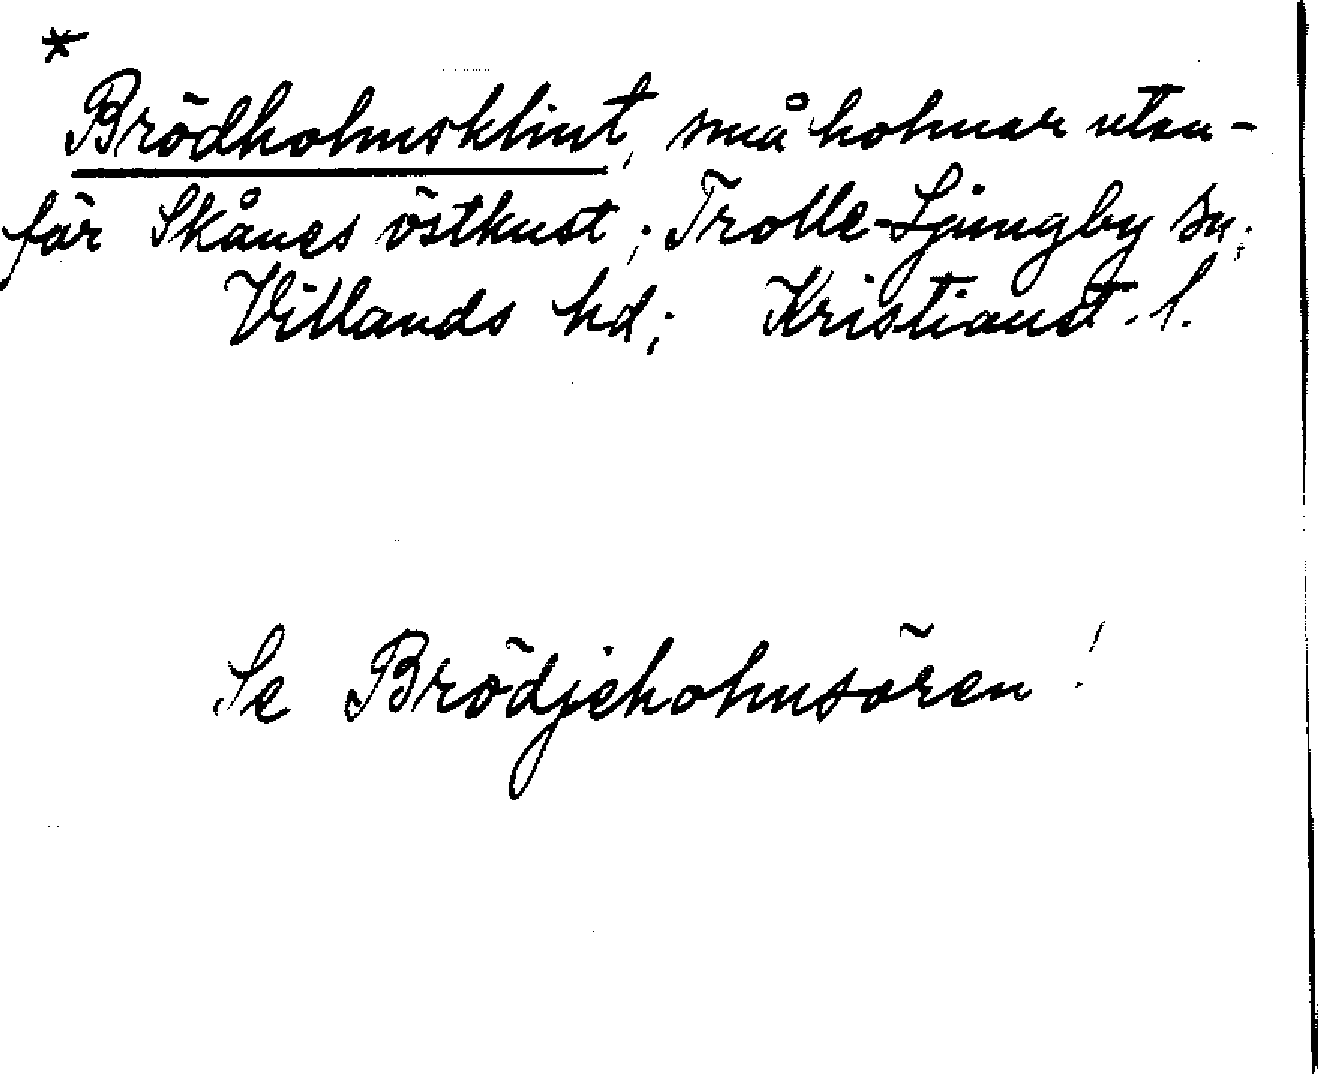 *
Brödholmsklint, små holmar utan-
för Skånes östkust; Trolle-Ljungby sn;
Villands hd; Kristianst. l.
Se Brödjeholmsören!